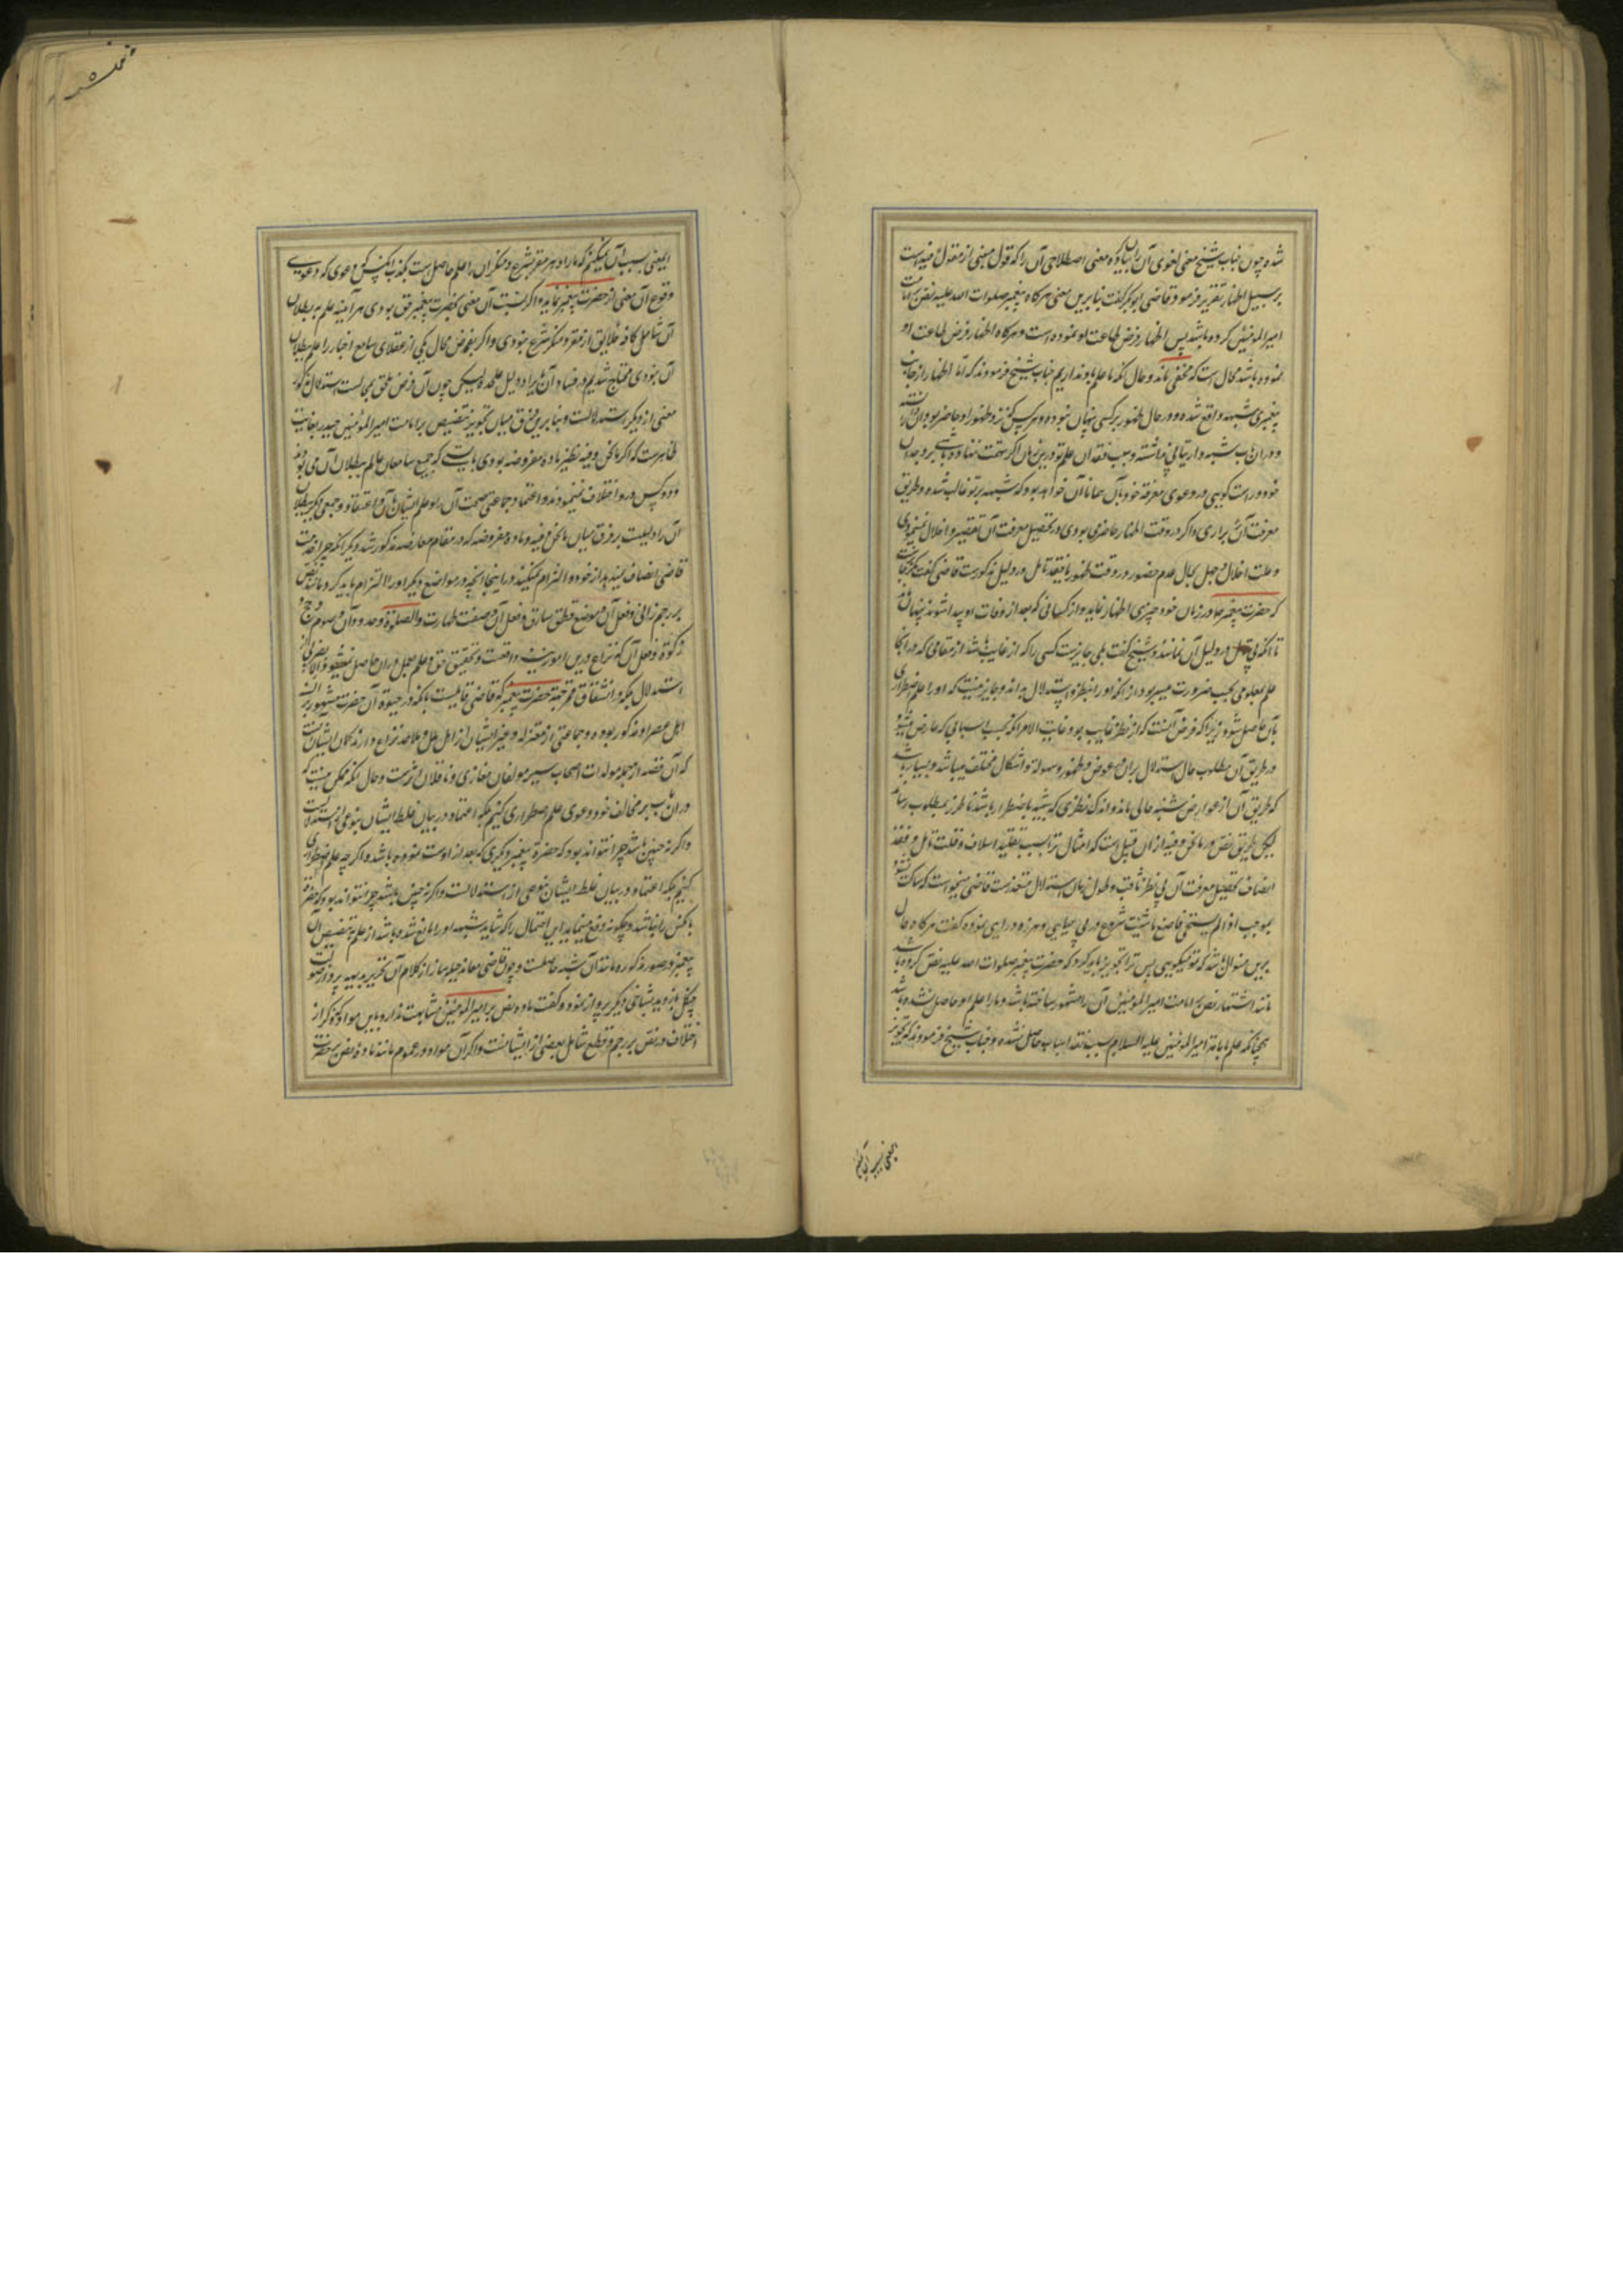 شده چون جناب شیخ معنی لغوی آن را بیان کرده معنی اصطلاحی آن را که قول مبنی از مقول فیه است
بر سبیل اظهار تقریر فرمود قاضی ابوبکر گفت بنابرین معنی هرگاه پیغمبر صلوات الله علیه نص بر امامت
امیرالمؤمنین کرده باشد پس اظهار فرض طاعت او نموده است و هرگاه اظهار فرض طاعت او
نموده باشد محال است که مخفی ماند و حال آنکه ما علم باو نداریم جناب شیخ فرمودند که اما اظهار از جانب
پیغمبری شبهه واقع شده و در حال ظهور بر کسی پنهان نبوده و هرکس که نزد ظهور او حاضر بود
و در آن باب شبهه و ارتیابی نداشته و سبب فقدان علم تو درین زمان اگر تهمت ننهاده باشی بر وجدان
خود و راست گویی در دعوی معرفة خود بآن همانا آن خواهد بود که شبهه بر تو غالب شده و طریق
معرفت آن براری و اگر در وقت اظهار حاضر می بودی در تحصیل معرفت آن تقصیر و اخلال نمینمودی
و علت اخلال و جهل بحال عدم حضور در وقت ظهور با فقد تأمل در دلیل مذکور است قاضی گفت
که حضرت پیغمبر ما در زمان خود چیزی اظهار نماید و از کسانی که بعد از وفات او پیدا شوند پنهان ماند
تا آنکه بی تأمل در دلیل آن ندانند و شیخ گفت بلی جایز است کسی را که از غایب باشد از مقامی که در آنجا
علم بمعلومی بحسب ضرورت میسر بود از آنکه او را بنظر و استدلال بداند و جایز نیست که او را علم ضروری
بآن حاصل شود زیرا که فرض آنست که از نظر غایب بود و غایت الامر آنکه بحسب اسبابی که عارض میشود
در طریق آن مطلوب حال استدلال بر آن بغموض و ظهور و سهولة و اشکال مختلف میباشد و بسیار باشد
که طریق آن از عوارض شبهه خالی باشد و اندک نظری که شبیه باضطرار باشد ناظر را بمطلوب رساند
لیکن طریق نص در ما نحن فیه از آن قبیل است که امثال ترا بسبب تقلید اسلاف و قلت تأمل و فقد
انصاف تحصیل معرفت آن بی نظر ثاقب و طول زمان استدلال متعذر است قاضی میخواست که ساکت نشود
بموجب اذا لم تستحی فاصنع ما شئت شروع در بی حیایی و هرزه درایی نموده گفت هرگاه حال
برین منوال باشد که تو میگویی پس ترا تجویز باید کرد که حضرت پیغمبر صلوات الله علیه نص کرده باشد
مانند اشتهار نص بر امامت امیرالمؤمنین و آن را مشهور ساخته باشد و ما را علم او حاصل نشده باشد
چنانکه علم بامامة امیرالمؤمنین علیه السلام سبب فقد اسباب حاصل نشده و جناب شیخ فرمودند که تجویز
یعنی بسبب آن نمیکنم
اینمعنی بسبب آن نمیکنم که ما را و هر مقر بشرع و منکر آن را علم حاصل است بکذب آنکس که دعوی
وقوع آن معنی از حضرت پیغمبر نماید و اگر نسبت آن معنی بحضرت پیغمبر حق بودی هرآینه علم به بطلان
آن شامل کافه خلایق از مقر و منکر شرع نبودی و اگر بفرض محال یکی از عقلای سامع اخبار را علم ببطلان
آن نبودی محتاج شدیم در فساد آن بایراد دلیل علیحده لیکن چون آن فرض ملحق بمحالست استدلال مذکور
معنی از دیگر استدلالست و بنا برین فرق میان تجویز تنصیص بر امامت امیرالمؤمنین حیدر بغایت
ظاهر است که اگر ما نحن فیه نظیر ماده مفروضه بودی بایست که جمیع سامعان عالم ببطلان آن می بودند
و دو کس در و اختلاف نمینمودند و اعتماد جماعتی بصحت آن
آن را دلیلیست بر فرق میان ما نحن فیه و ماده مفروضه که در مقام معارضه مذکور شد دیگر آنکه چرا
قاضی انصاف نمیدهد از خود و التزام نمیکند در اینجا آنچه در مواضع دیگر او را التزام باید کرد مانند نص
بر رجم زانی و فعل آن و موضع قطع سارق و فعل آن و صفت طهارت والصلوة و حدود آن و صوم و حج و
زکوة و فعل آن که نزاع درین امور نیز واقعست و تحقیق حق و علم بعمل در آن حاصل نمیشود الا بضربی از
استدلال بلکه در انشقاق قمر جهة حضرت پیغمبر که قاضی قایلست بآنکه در حیوة آن حضرت مشهور
اهل عصر او مذکور بوده و جماعتی از معتزله و غیر ایشان از اهل ملل و ملاحده نزاع دارند گمان ایشان آنست
که آن قصه از جمله مولدات اصحاب سیر و مولفان مغازی و ناقلان اثر است و حال آنکه ممکن نیست که
در آن باب بر مخالف خود دعوی علم اضطراری کنیم بلکه اعتماد در بیان غلط ایشان بنوعی از استدلالست
و اگر نه چنین باشد چرا نتواند بود که حضرة پیغمبر دیگری که بعد از اوست نموده باشد و اگر چه علم ضروری
کنیم بلکه اعتماد در بیان غلط ایشان بنوعی از استدلالست و اگر نه چنین باشد چرا نتواند بود که حضرة
با کس را نباشد و چگونه دفع مینماید این احتمال را که شاید شبهه او را مانع شده باشد از علم به تنصیص آن
پیغمبر و صور مذکوره مانند آن شبهه حاصلست و چون قاضی معاند حیله ساز از کلام آن
چنگل باز دید بشاخی دیگر پرواز نموده گفت ماده نص بر امیرالمؤمنین مشابهت ندارد باین مواد مذکوره از
اختلاف در نص بر رجم و قطع شامل بعضی از ایشانست و اگر آن مواد در عموم مانند ماده نص بر حضرت